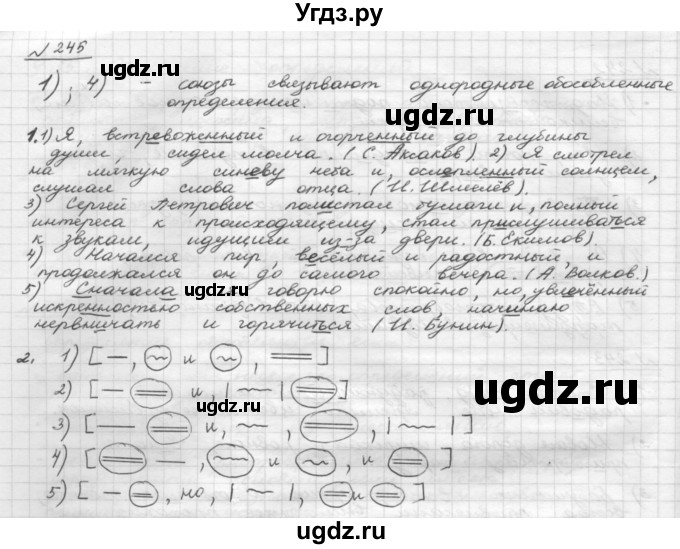 Угдз.ру
№ 245
1); 4) – союзы связывают однородные обособленные
определения.
1. 1) Я, встревоженный и огорченный до глубины
души, сидел молча. (С. Аксаков). 2) Я смотрел
на мягкую синеву неба и, ослепленный солнцем,
слушал слова отца. (И. Шмелёв).
3) Сергей Петрович полистал бумаги и, полный
интереса к происходящему, стал прислушиваться
к звукам, идущим из-за двери. (Б. Екимов).
4) Начался пир, весёлый и радостный, и
продолжался он до самого вечера. (А. Волков.)
5) Сначала я говорю спокойно, но, увлечённый
искренностью собственных слов, начинаю
нервничать и горячиться (И. Бунин).
2. 1) [ — , и , ]
2) [ — и, | | ]
3) [ — и, , , | | ]
4) [ — , и , и ]
5) [ — , но, | | , и ]
ugdz.ru
ugdz.ru
ugdz.ru
ugdz.ru
ugdz.ru
ugdz.ru
ugdz.ru
ugdz.ru
ugdz.ru